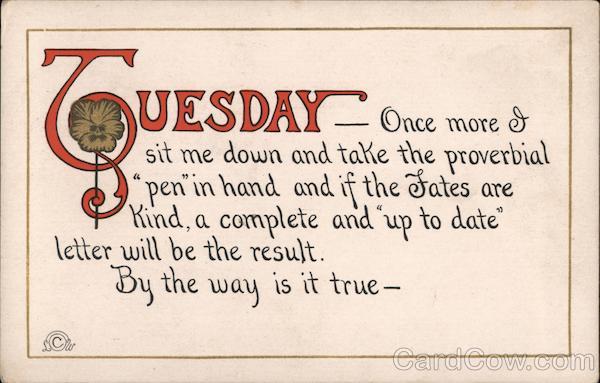 TUESDAY — Once more I
sit me down and take the proverbial
"pen" in hand and if the Fates are
kind, a complete and "up to date"
letter will be the result.
By the way is it true —
CardCow.com